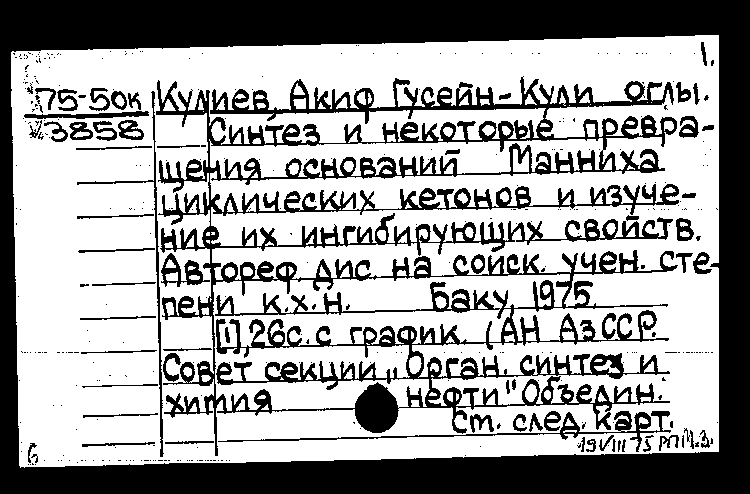 1.
75-50к Кулиев, Акиф Гусейн-Кули оглы.
3858 Синтез и некоторые превра-
щения оснований Манниха
циклических кетонов и изуче-
ние их ингибирующих свойств.
Автореф. дис. на соиск. учен. сте-
пени к.х.н. Баку, 1975.
[1], 26с. с график. (АН АзССР.
Совет секции „Орган. синтез и
химия нефти" Объедин.
См. след. карт.
б 19 VIII 75 РПМ.З.